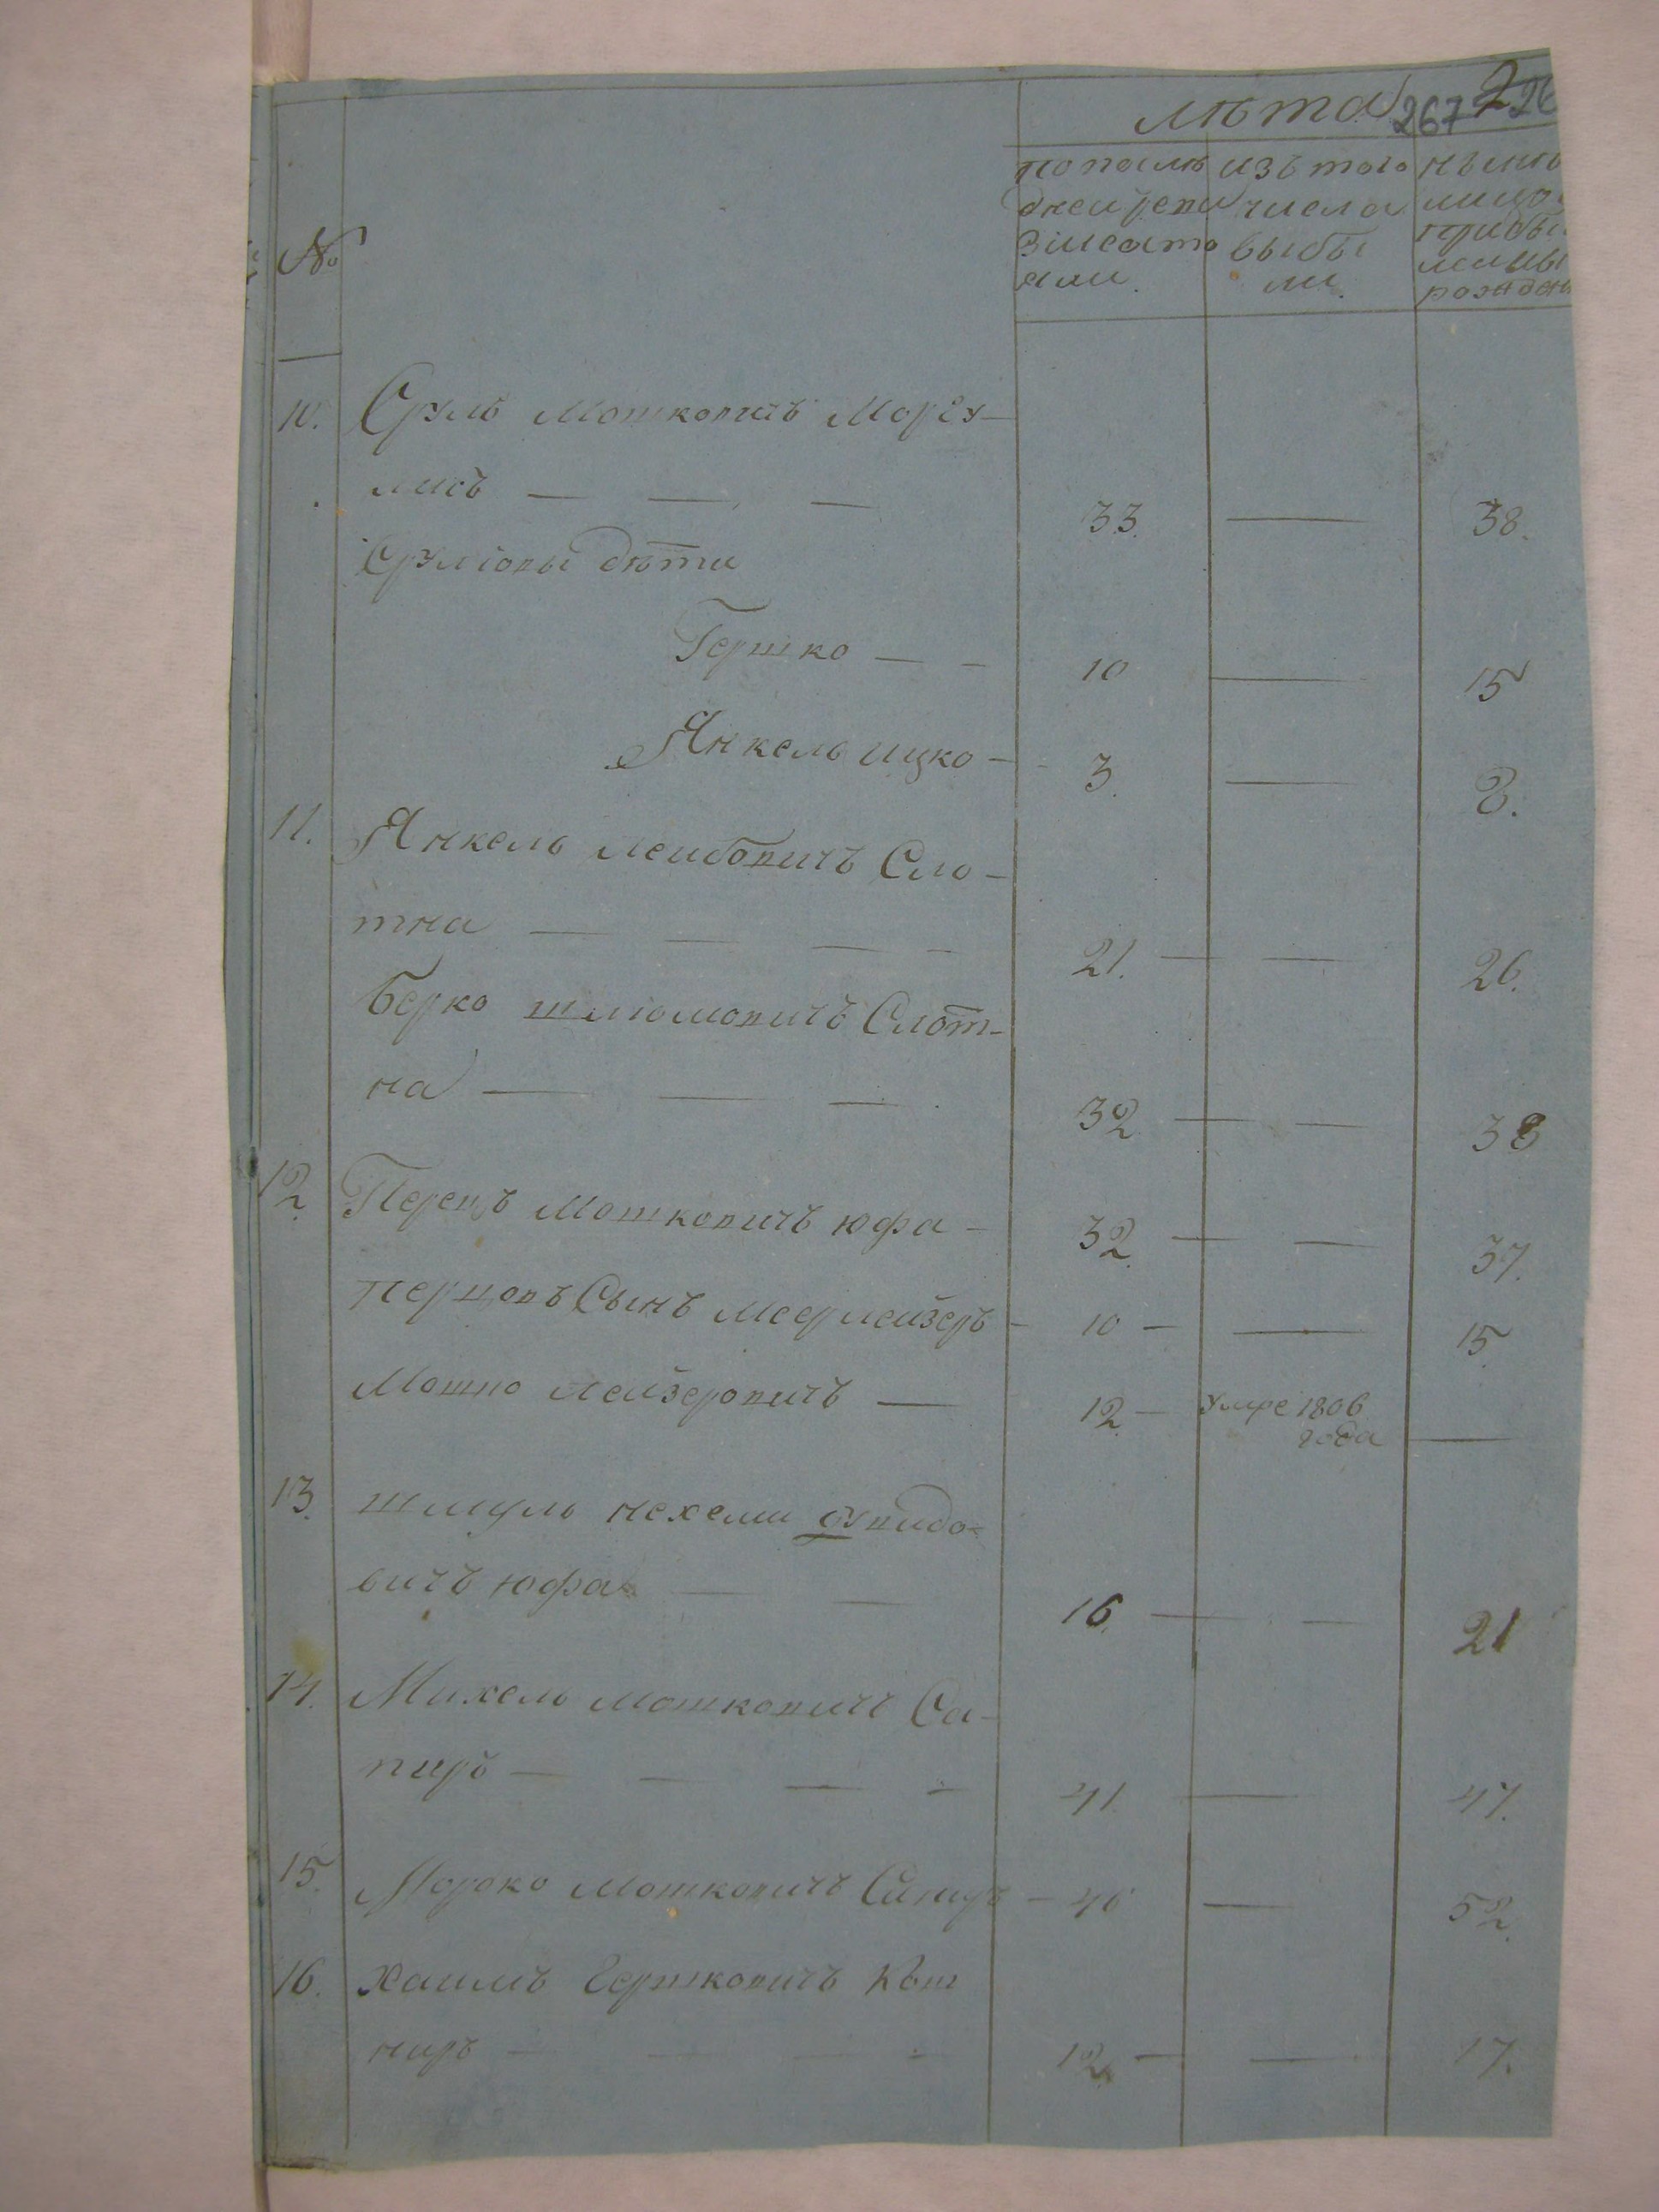 лѣта 267 226
№ по послѣ изъ того нынѣ
дней реви числа лицо
зіи состо выбы прибы
яли. ли. лыцы
рожден
10. Сруль Мошковичъ Моргу-
лисъ — — — 33. — 38.
Сруліовы дѣти
Гершко — — 10 — 15
Янкель ицко — 3. — 8.
11. Янкель лейбовичъ Сло-
тна — — — — 21. — — 26.
Берко шлюмовичъ Слот-
на — — — 32 — — 38
12. Перецъ Мошковичъ юфа — 32. — — 37.
перцовъ Сынъ меерлейзеръ — 10 — — 15.
Мошко лейзеровичъ — 12. — умре 1806
года —
13. шмуль нехеми дувидо-
вичъ юфа — — 16. — — 21
14. Михель мошковичъ Са-
пиръ — — — — 41. — 47.
15. Мороко мошковичъ Сапиръ — 46 — 52.
16. Хаимъ гершковичъ Куш
ниръ — — — — 12. — — 17.